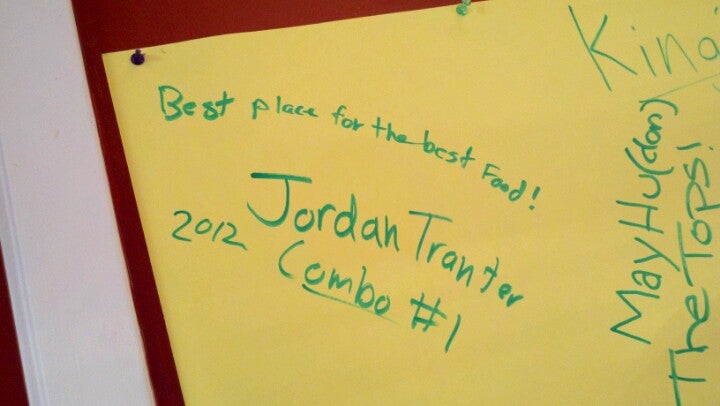 Best place for the best Food!
2012 Jordan Tranter
Combo #1
King
MayHu(don)
TheTops!